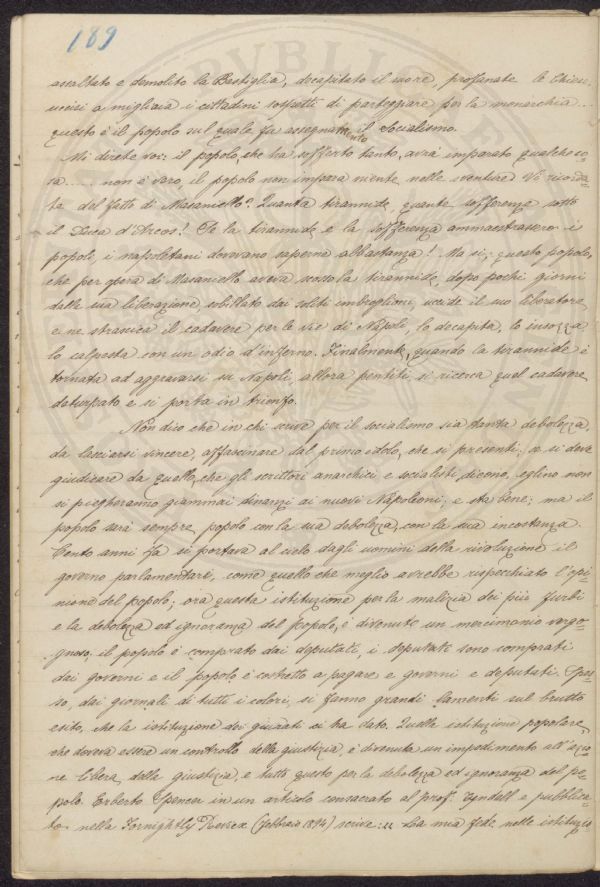 189
assaltato e demolito la Bastiglia, decapitato il suo re, profanate le Chiese,
uccisi a migliaia i cittadini sospetti di parteggiare per la monarchia...
questo è il popolo sul quale fa assegnamento il Socialismo.
Mi direte voi: il popolo, che ha sofferto tanto, avrà imparato qualche co-
sa..... non è vero, il popolo non impara niente nelle sventure. Vi ricorda-
te del fatto di Masaniello? Quanta tirannide, quante sofferenze sotto
il Duca d'Arcos! Se la tirannide e la sofferenza ammaestrassero i
popoli, i napoletani dovevano saperne abbastanza! Ma si, questo popolo,
che per opera di Masaniello aveva scosso la tirannide, dopo pochi giorni
dalla sua liberazione, sobillato dai soliti imbroglioni, uccide il suo liberatore
e ne strascica il cadavere per le vie di Napoli, lo decapita, lo insozza
lo calpesta con un odio d'inferno. Finalmente, quando la tirannide è
tornata ad aggravarsi su Napoli, allora pentiti, si ricerca quel cadavere
deturpato e si porta in trionfo.
Non dico che in chi scrive per il socialismo sia tanta debolezza,
da lasciarsi vincere, affascinare dal primo idolo, che si presenti; se si deve
giudicare da quello, che gli scrittori anarchici e socialisti dicono, eglino non
si piegheranno giammai dinanzi ai nuovi Napoleoni, e sta bene; ma il
popolo sarà sempre popolo con la sua debolezza, con la sua incostanza.
Cento anni fa si portava al cielo dagli uomini della rivoluzione il
governo parlamentare, come quello che meglio avrebbe rispecchiato l'opi-
nione del popolo; ora questa istituzione per la malizia dei più furbi
e la debolezza ed ignoranza del popolo, è divenuta un mercimonio vergo-
gnoso, il popolo è comprato dai deputati, i deputati sono comprati
dai governi e il popolo è costretto a pagare e governi e deputati. Spes-
so, dai giornali di tutti i colori, si fanno grandi lamenti sul brutto
esito, che la istituzione dei giurati ci ha dato. Quella istituzione popolare,
che doveva essere un controllo della giustizia, è divenuta un impedimento all'azio-
ne libera della giustizia, e tutto questo per la debolezza ed ignoranza del po-
polo. Erberto Spencer in un articolo consacrato al prof. Tyndall e pubblica-
to nella Fornightly Review (febbraio 1894) scrive: « La mia fede nelle istituzio-